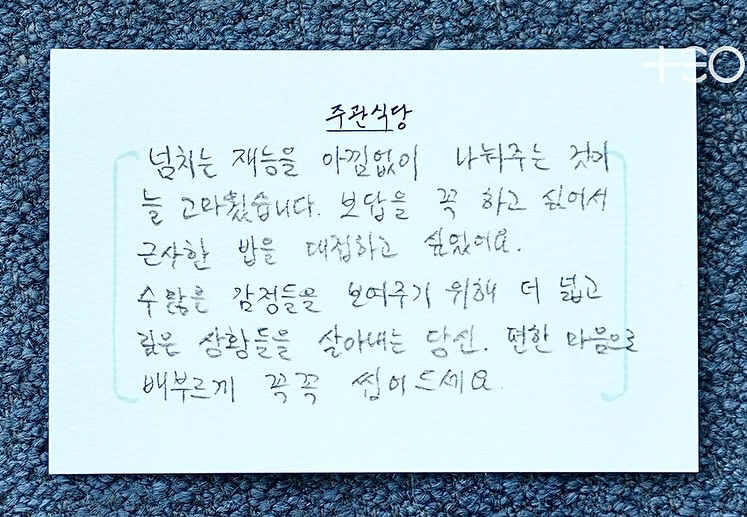 TEO
주관식당
넘치는 재능을 아낌없이 나눠주는 것이
늘 고마웠습니다. 보답을 꼭 하고 싶어서
근사한 밥을 대접하고 싶었어요.
수많은 감정들을 보여주기 위해 더 넓고
깊은 상황들을 살아내는 당신. 편한 마음으로
배부르게 꼭꼭 씹어드세요.